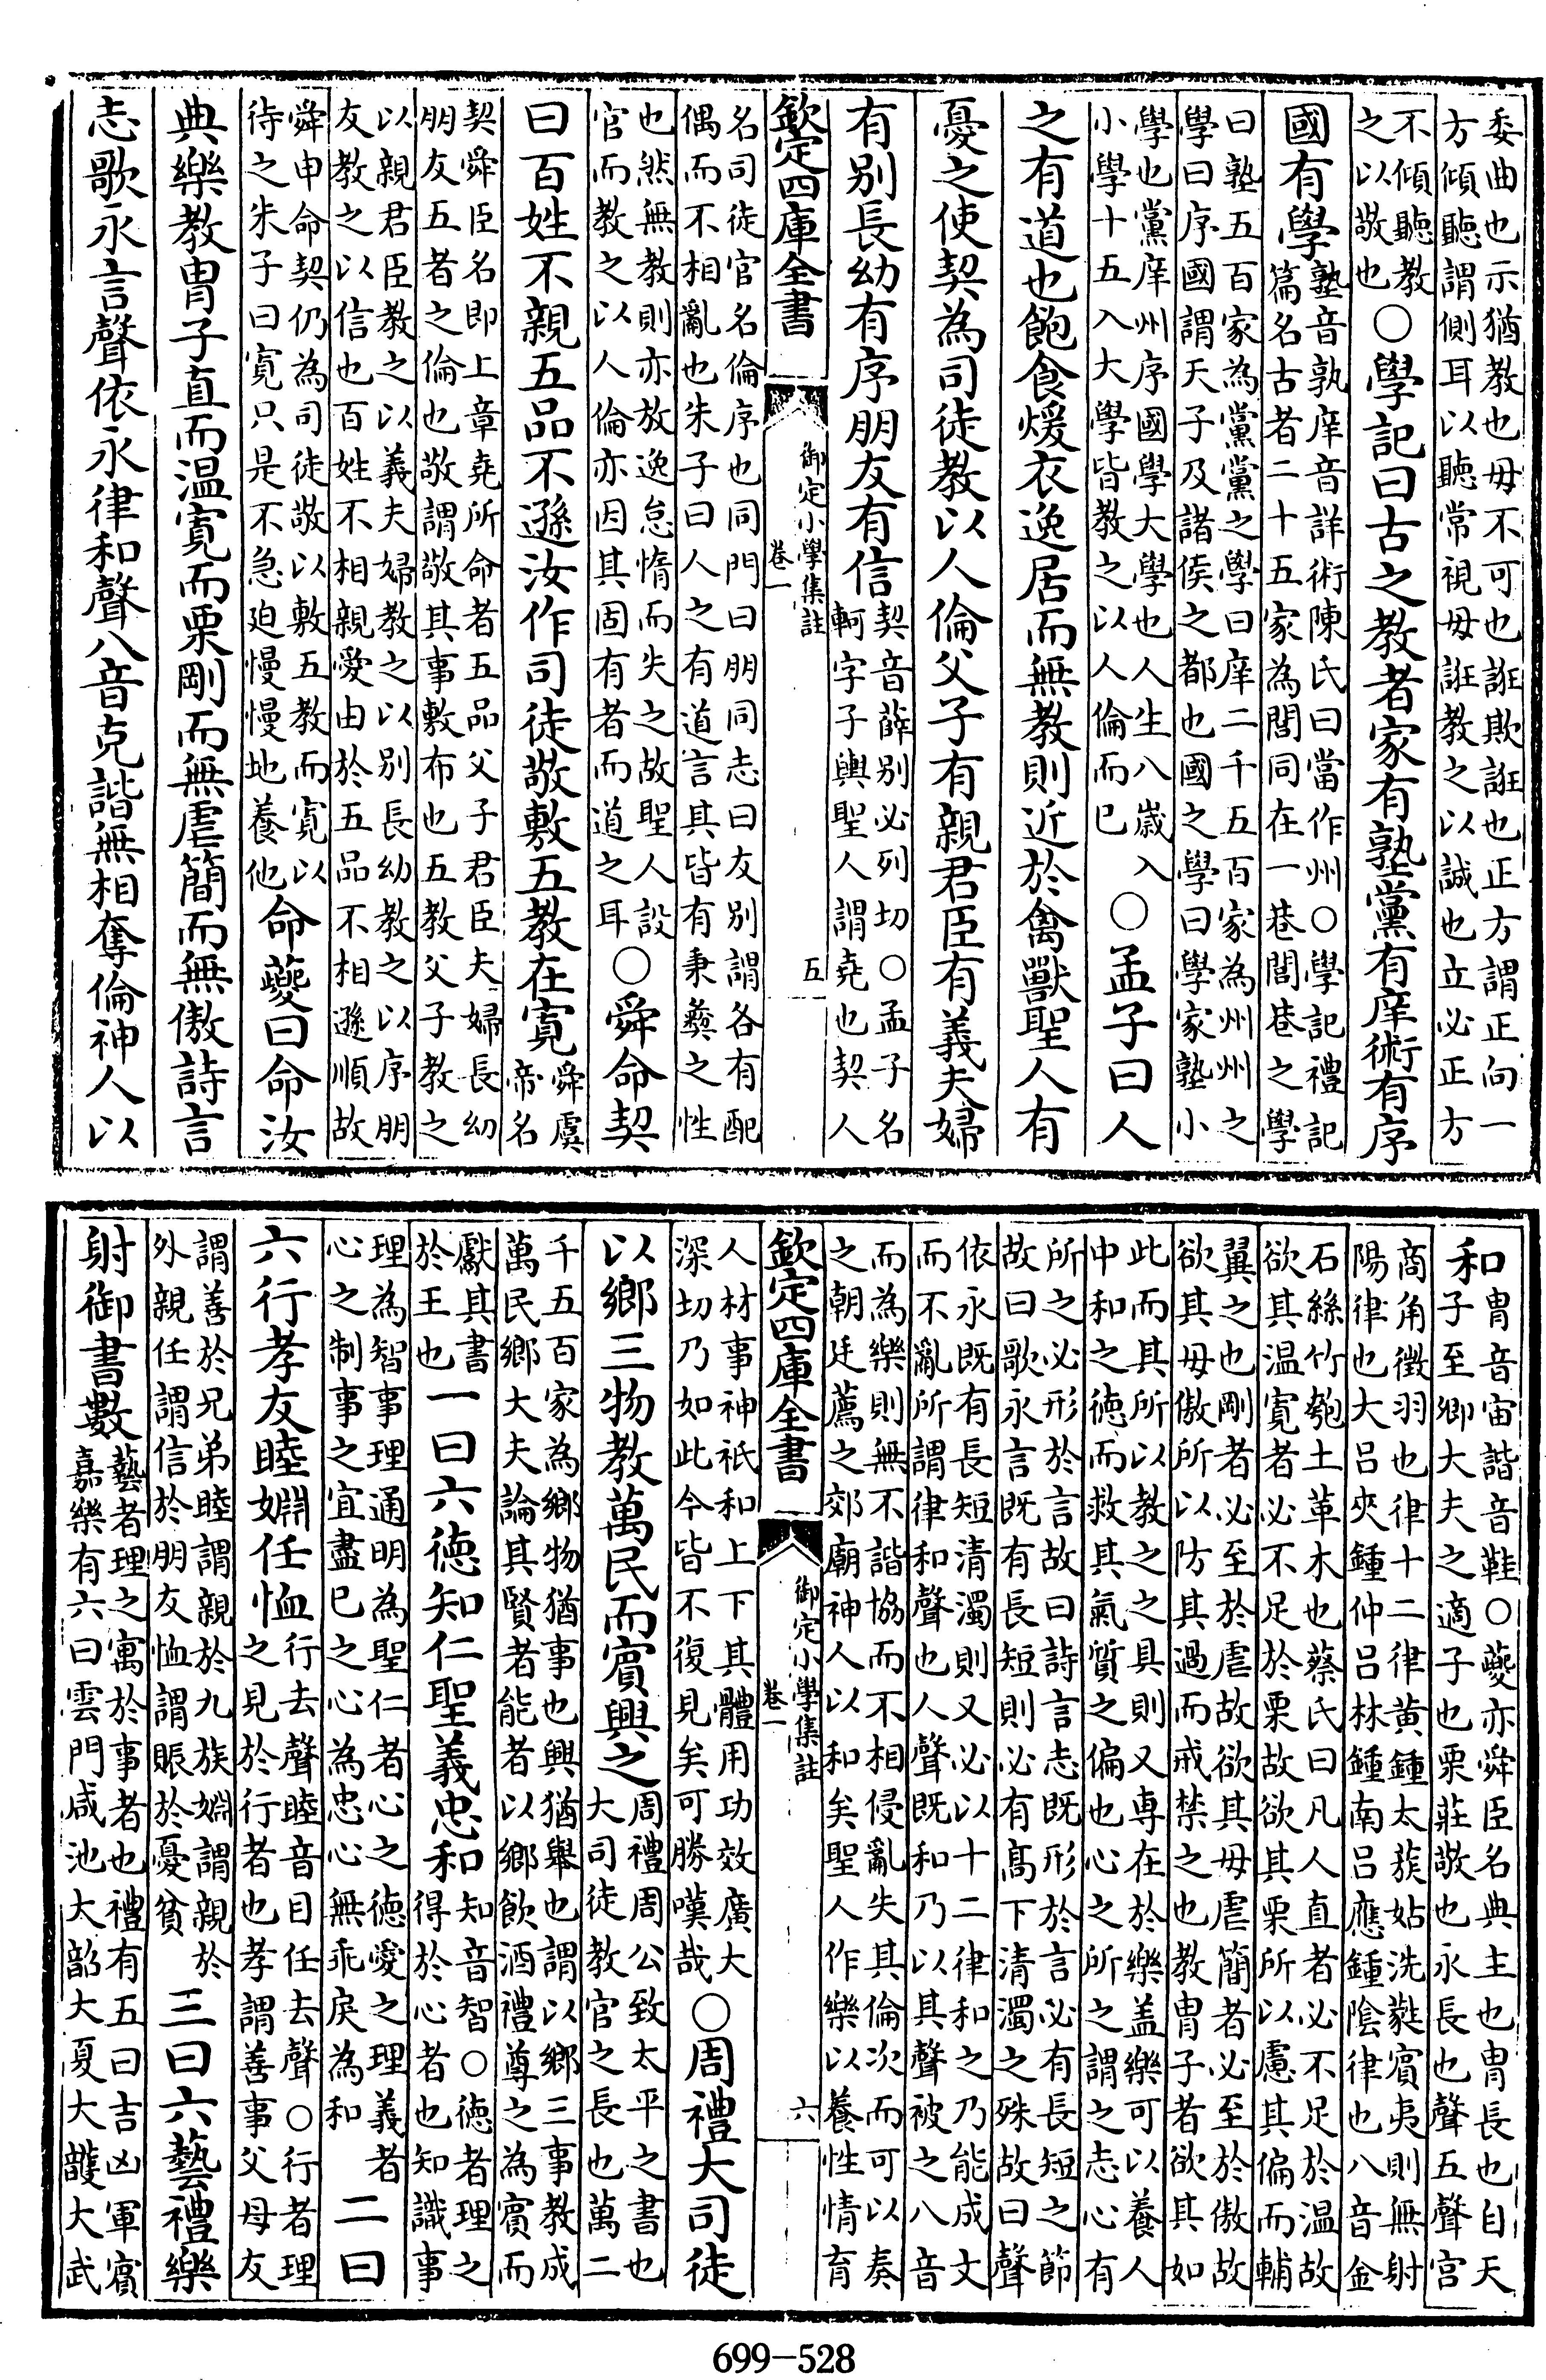 委曲也示猶教也毋不可也誑欺誑也正方謂正向一
方傾聽謂側耳以聽常視毋誑教之以誠也立必正方
不傾聽教之以敬也○學記曰古之教者家有塾黨有庠術有序
國有學塾音孰庠音詳術陳氏曰當作州○學記禮記篇名古者二十五家為閭同在一巷閭巷之學
曰塾五百家為黨黨之學曰庠二千五百家為州州之
學曰序國謂天子及諸侯之都也國之學曰學家塾小
學也黨庠州序國學大學也人生八歲入
小學十五入大學皆教之以人倫而已○孟子曰人
之有道也飽食煖衣逸居而無教則近於禽獸聖人有
憂之使契為司徒教以人倫父子有親君臣有義夫婦
有别長幼有序朋友有信契音薛别必列切○孟子名軻字子輿聖人謂堯也契人
欽定四庫全書
御定小學集註
卷一
五
名司徒官名倫序也同門曰朋同志曰友别謂各有配
偶而不相亂也朱子曰人之有道言其皆有秉彝之性
也然無教則亦放逸怠惰而失之故聖人設
官而教之以人倫亦因其固有者而道之耳○舜命契
曰百姓不親五品不遜汝作司徒敬敷五教在寛舜虞帝名
契舜臣名即上章堯所命者五品父子君臣夫婦長幼
朋友五者之倫也敬謂敬其事敷布也五教父子教之
以親君臣教之以義夫婦教之以别長幼教之以序朋
友教之以信也百姓不相親愛由於五品不相遜順故
舜申命契仍為司徒敬以敷五教而寛以
待之朱子曰寛只是不急迫慢慢地養他命夔曰命汝
典樂教胄子直而温寛而栗剛而無虐簡而無傲詩言
志歌永言聲依永律和聲八音克諧無相奪倫神人以
和胄音宙諧音鞋○夔亦舜臣名典主也胄長也自天子至卿大夫之適子也栗莊敬也永長也聲五聲宫
商角徵羽也律十二律黄鍾太蔟姑洗蕤賓夷則無射
陽律也大吕夾鍾仲吕林鍾南吕應鍾陰律也八音金
石絲竹匏土革木也蔡氏曰凡人直者必不足於温故
欲其温寛者必不足於栗故欲其栗所以慮其偏而輔
翼之也剛者必至於虐故欲其毋虐簡者必至於傲故
欲其毋傲所以防其過而戒禁之也教胄子者欲其如
此而其所以教之之具則又専在於樂盖樂可以養人
中和之徳而救其氣質之偏也心之所之謂之志心有
所之必形於言故曰詩言志既形於言必有長短之節
故曰歌永言既有長短則必有髙下清濁之殊故曰聲
依永既有長短清濁則又必以十二律和之乃能成文
而不亂所謂律和聲也人聲既和乃以其聲被之八音
而為樂則無不諧協而不相侵亂失其倫次而可以奏
之朝廷薦之郊廟神人以和矣聖人作樂以養性情育
欽定四庫全書
御定小學集註
卷一
六
人材事神祇和上下其體用功效廣大
深切乃如此今皆不復見矣可勝嘆哉○周禮大司徒
以鄉三物教萬民而賓興之周禮周公致太平之書也大司徒教官之長也萬二
千五百家為鄉物猶事也興猶舉也謂以鄉三事教成
萬民鄉大夫論其賢者能者以鄉飲酒禮尊之為賓而
獻其書於王也一曰六徳知仁聖義忠和知音智○徳者理之得於心者也知識事
理為智事理通明為聖仁者心之徳愛之理義者
心之制事之宜盡已之心為忠心無乖戾為和二曰
六行孝友睦婣任恤行去聲睦音目任去聲○行者理之見於行者也孝謂善事父母友
謂善於兄弟睦謂親於九族婣謂親於
外親任謂信於朋友恤謂賑於憂貧三曰六藝禮樂
射御書數藝者理之寓於事者也禮有五曰吉凶軍賓嘉樂有六曰雲門咸池大韶大夏大頀大武
699-528